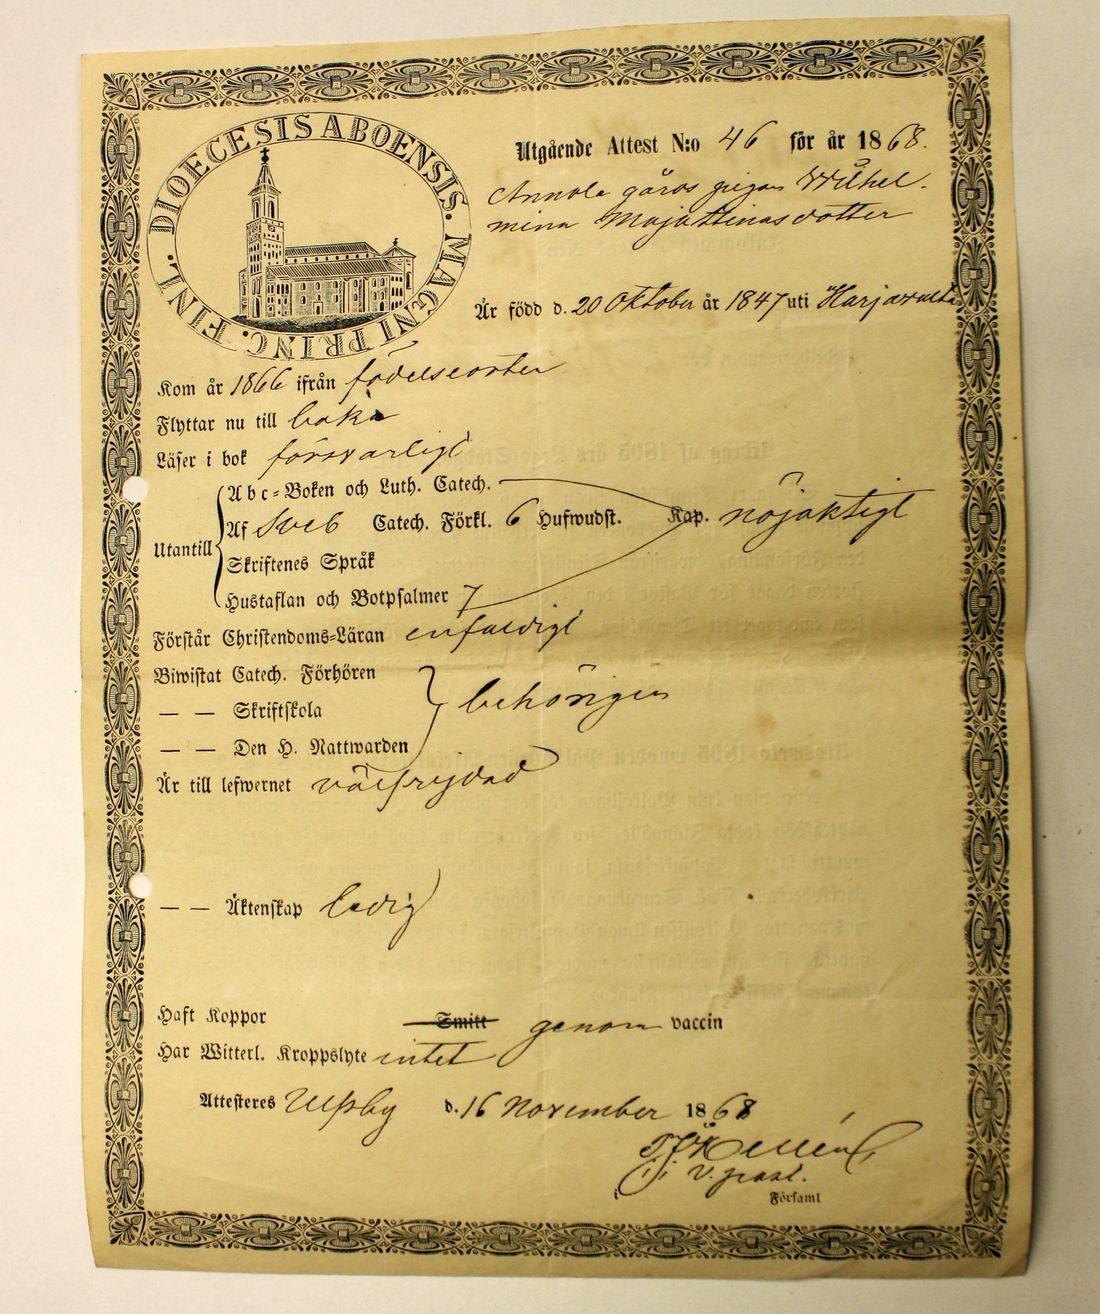 DIOECESIS ABOENSIS. MAGNI PRINC. FINL.
Utgående Attest N:o 46 för år 1868.
Annola gårds pigan Wilhel-
mina Majastinasdotter
Är född d. 20 Oktober år 1847 uti Harjavalta
Kom år 1866 ifrån födelseorten
Flyttar nu till baka
Läser i bok försvarligt
Utantill
Abc-Boken och Luth. Catech.
Af Sveb Catech. Förkl. 6 Hufwudst. Kap. nöjaktigt
Skriftenes Språk
Hustaflan och Botpsalmer 7
Förstår Christendoms-Läran enfaldigt
Biwistat Catech. Förhören
— — Skriftskola behörigen
— — Den H. Nattwarden
Är till lefwernet välfrejdad
— — Äktenskap ledig
Haft Koppor Smitt genom vaccin
Har Witterl. Kroppslyte intet
Attesteres Ulfsby d. 16 November 1868
v. past.
Församl